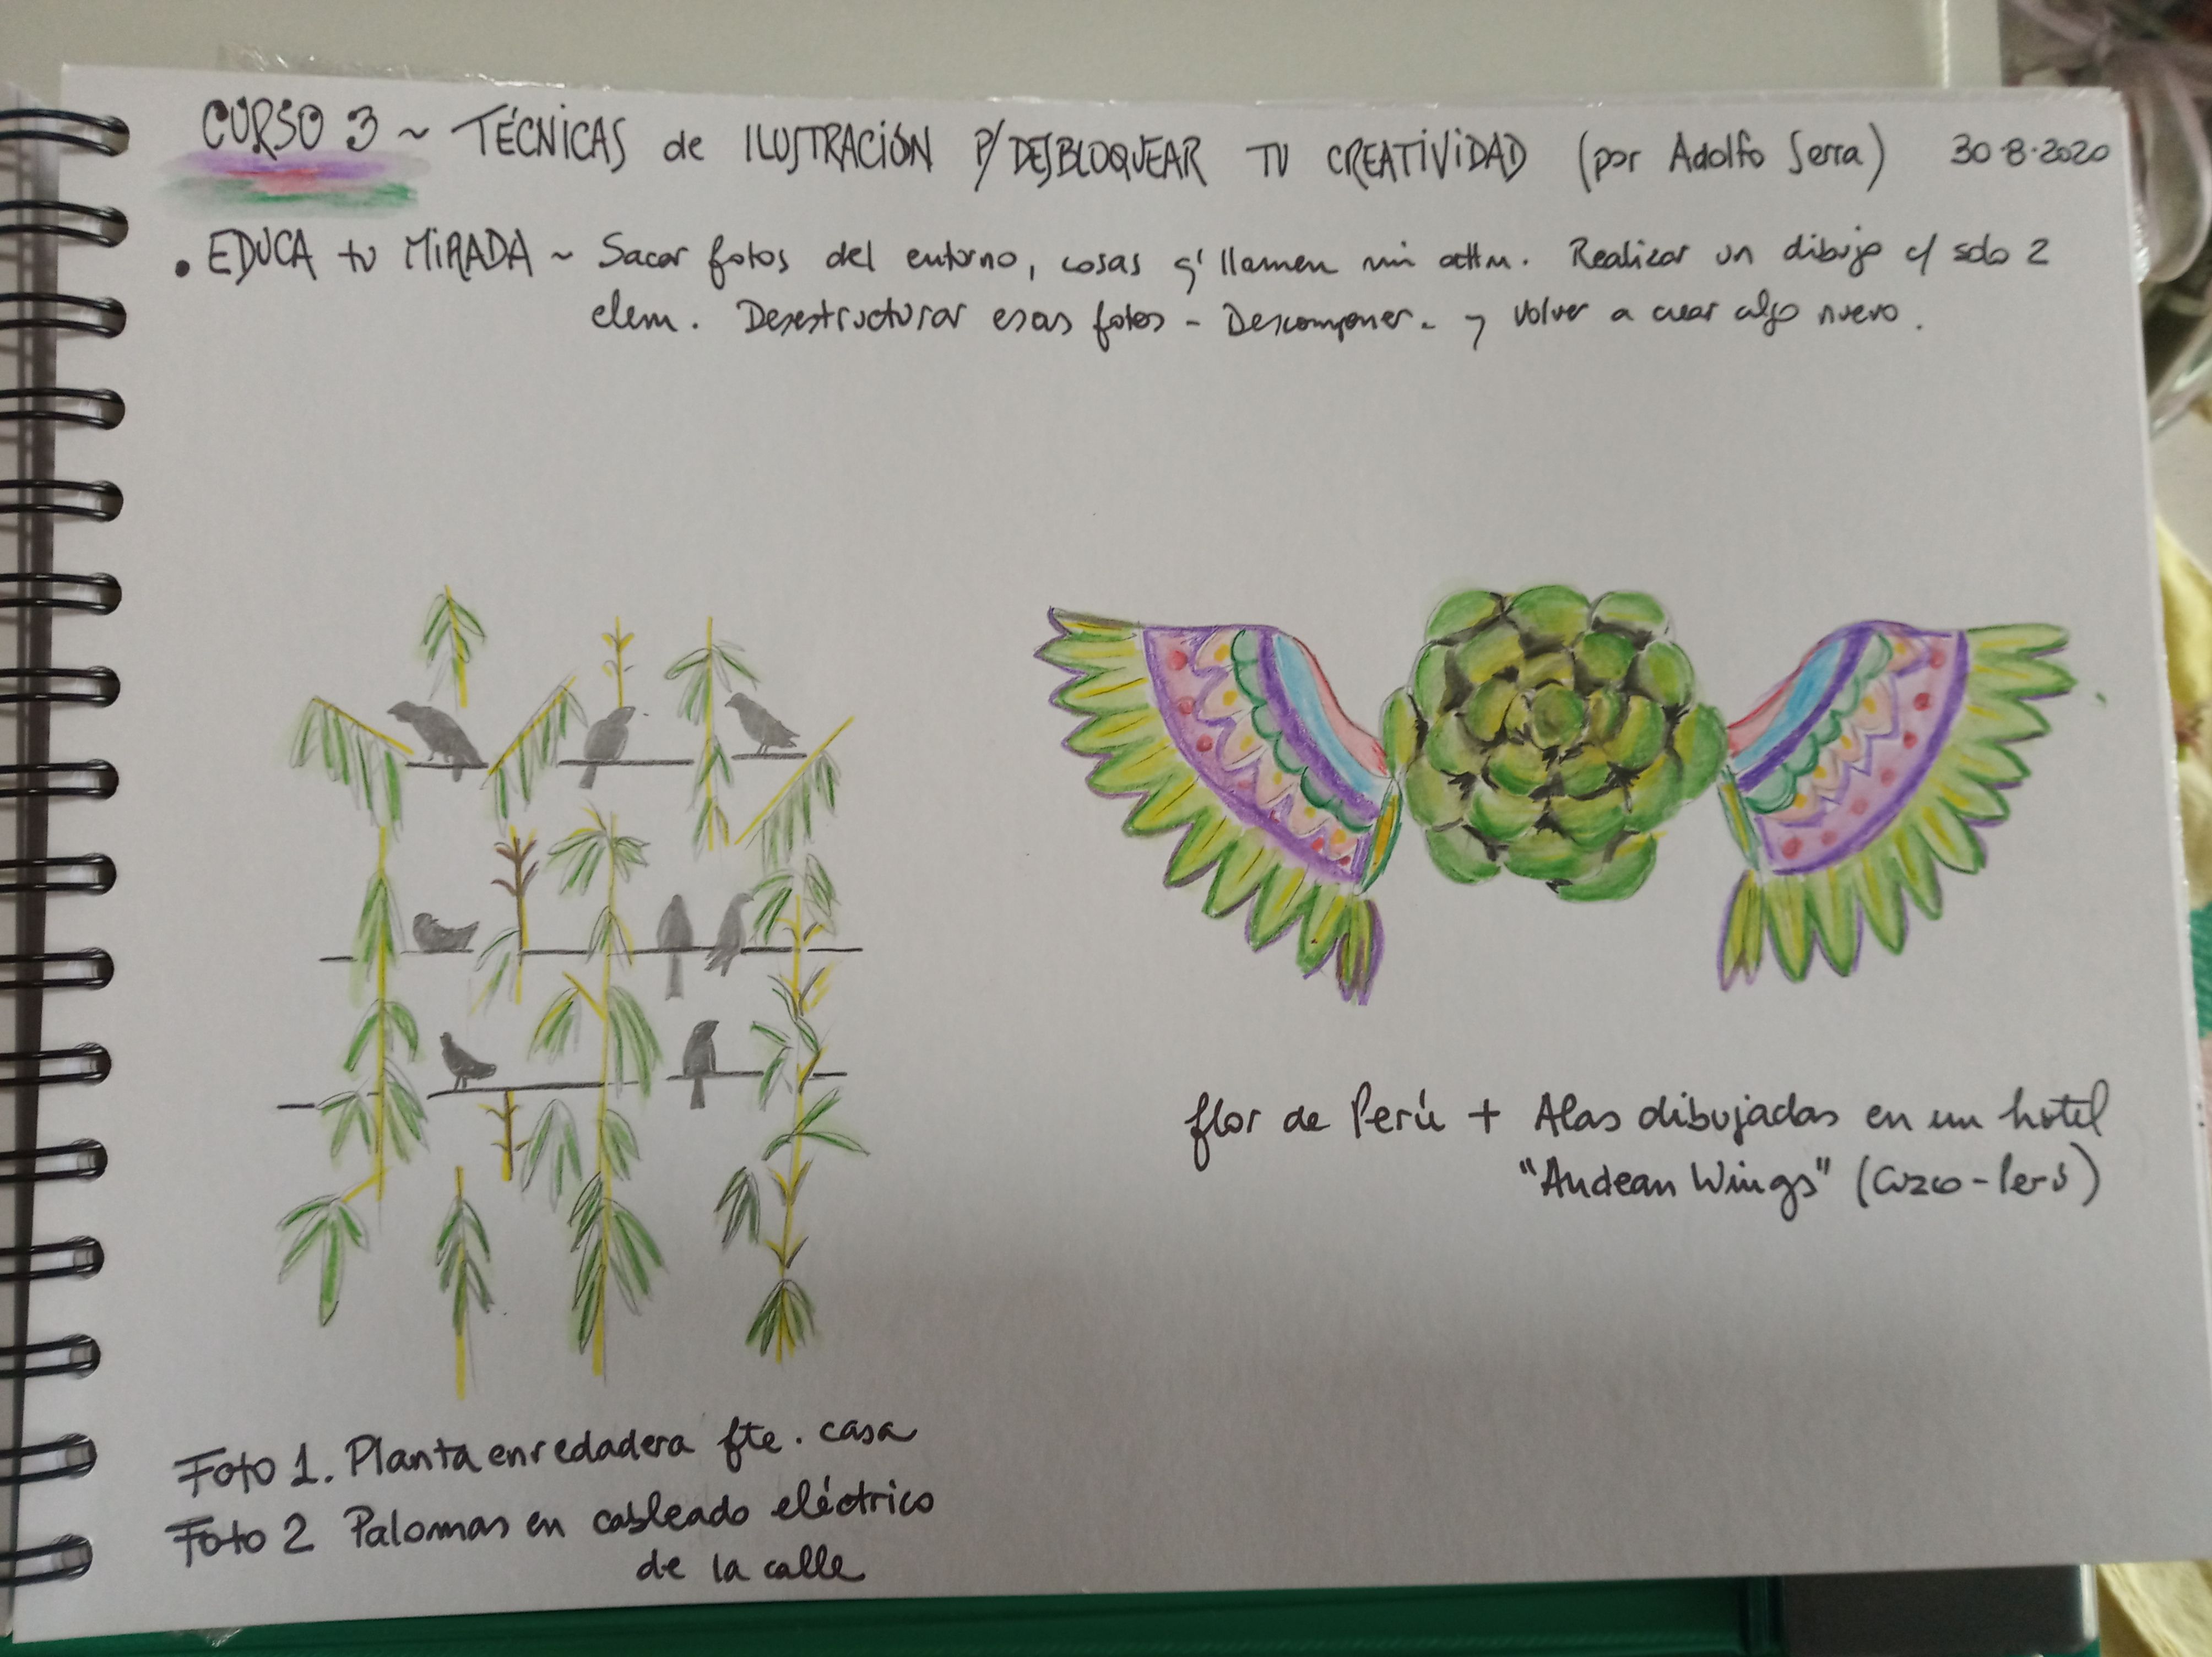 CURSO 3 ~ TÉCNICAS de ILUSTRACIÓN P/DESBLOQUEAR TU CREATIVIDAD (por Adolfo Serra) 30·8·2020
• EDUCA tu MIRADA ~ Sacar fotos del entorno, cosas q' llamen mi attn. Realizar un dibujo c/ solo 2
elem. Desestructurar esas fotos - Descomponer - y volver a crear algo nuevo.
flor de Perú + Alas dibujadas en un hotel
"Andean Wings" (Cuzco - Perú)
Foto 1. Planta enredadera fte. casa
Foto 2 Palomas en cableado eléctrico
de la calle